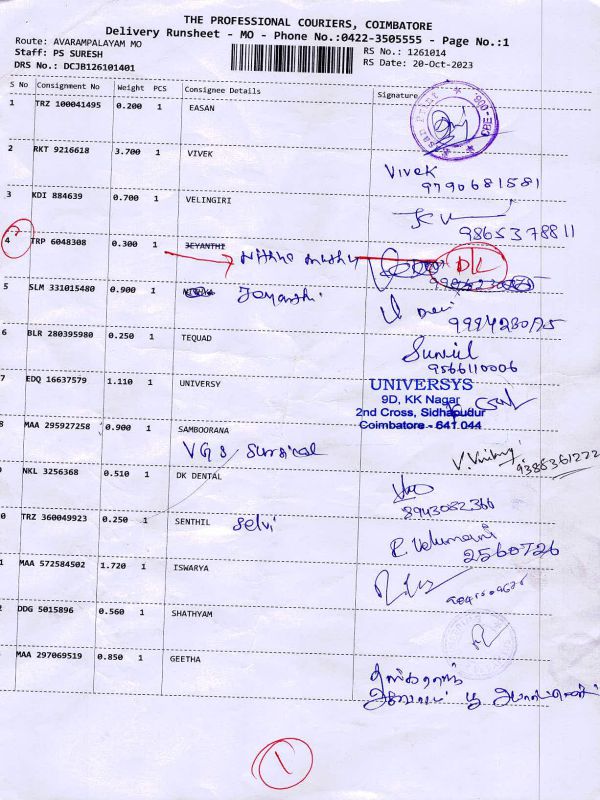 THE PROFESSIONAL COURIERS, COIMBATORE
Delivery Runsheet - MO - Phone No.:0422-3505555 - Page No.:1
Route: AVARAMPALAYAM MO
Staff: PS SURESH
DRS No.: DCJB126101401
RS No.: 1261014
RS Date: 20-Oct-2023
S No Consignment No Weight PCS Consignee Details Signature
1 TRZ 100041495 0.200 1 EASAN
2 RKT 9216618 3.700 1 VIVEK
Vivek
9790681581
3 KDI 884639 0.700 1 VELINGIRI
9865378811
4 TRP 6048308 0.300 1 JEYANTHI
DL
5 SLM 331015480 0.900 1 Jeyanthi
6 BLR 280395980 0.250 1 TEQUAD
Sunil
9566110006
7 EDQ 16637579 1.110 1 UNIVERSY
UNIVERSYS
9D, KK Nagar
2nd Cross, Sidhapudur
Coimbatore - 641 044
8 MAA 295927258 0.900 1 SAMBOORANA
VGS Surgical
9385361272
NKL 3256368 0.510 1 DK DENTAL
8943082366
0 TRZ 360049923 0.250 1 SENTHIL Selvi
R. Velumani
2560726
1 MAA 572584502 1.720 1 ISWARYA
2 DDG 5015896 0.560 1 SHATHYAM
MAA 297069519 0.850 1 GEETHA
1